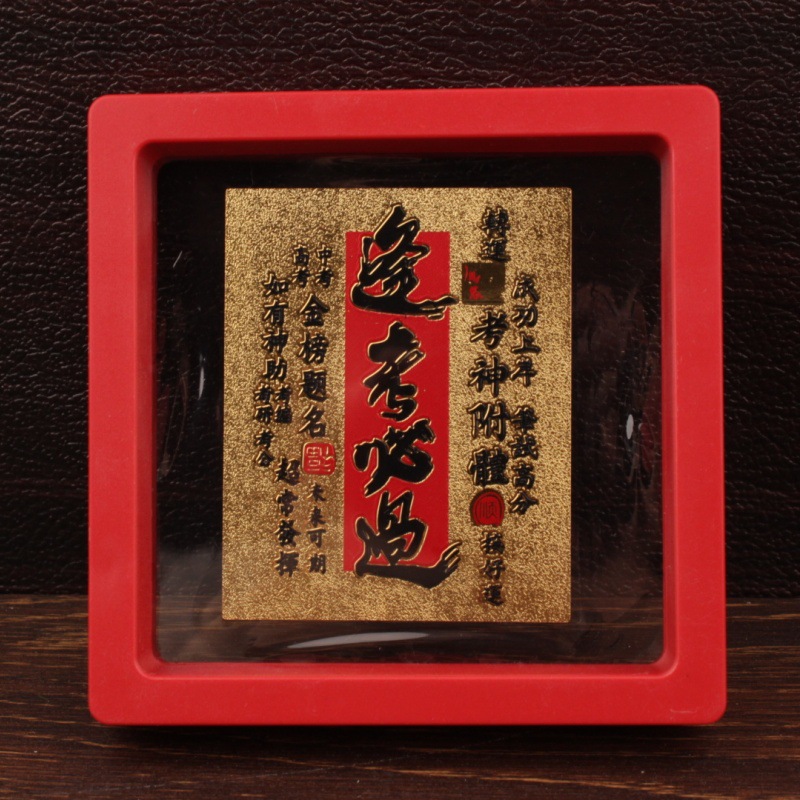 成功上岸
轉運
考神附體
順
好運
逢考必過
中考
高考
金榜题名
未来可期
如有神助
考編
考研考公
超常發揮